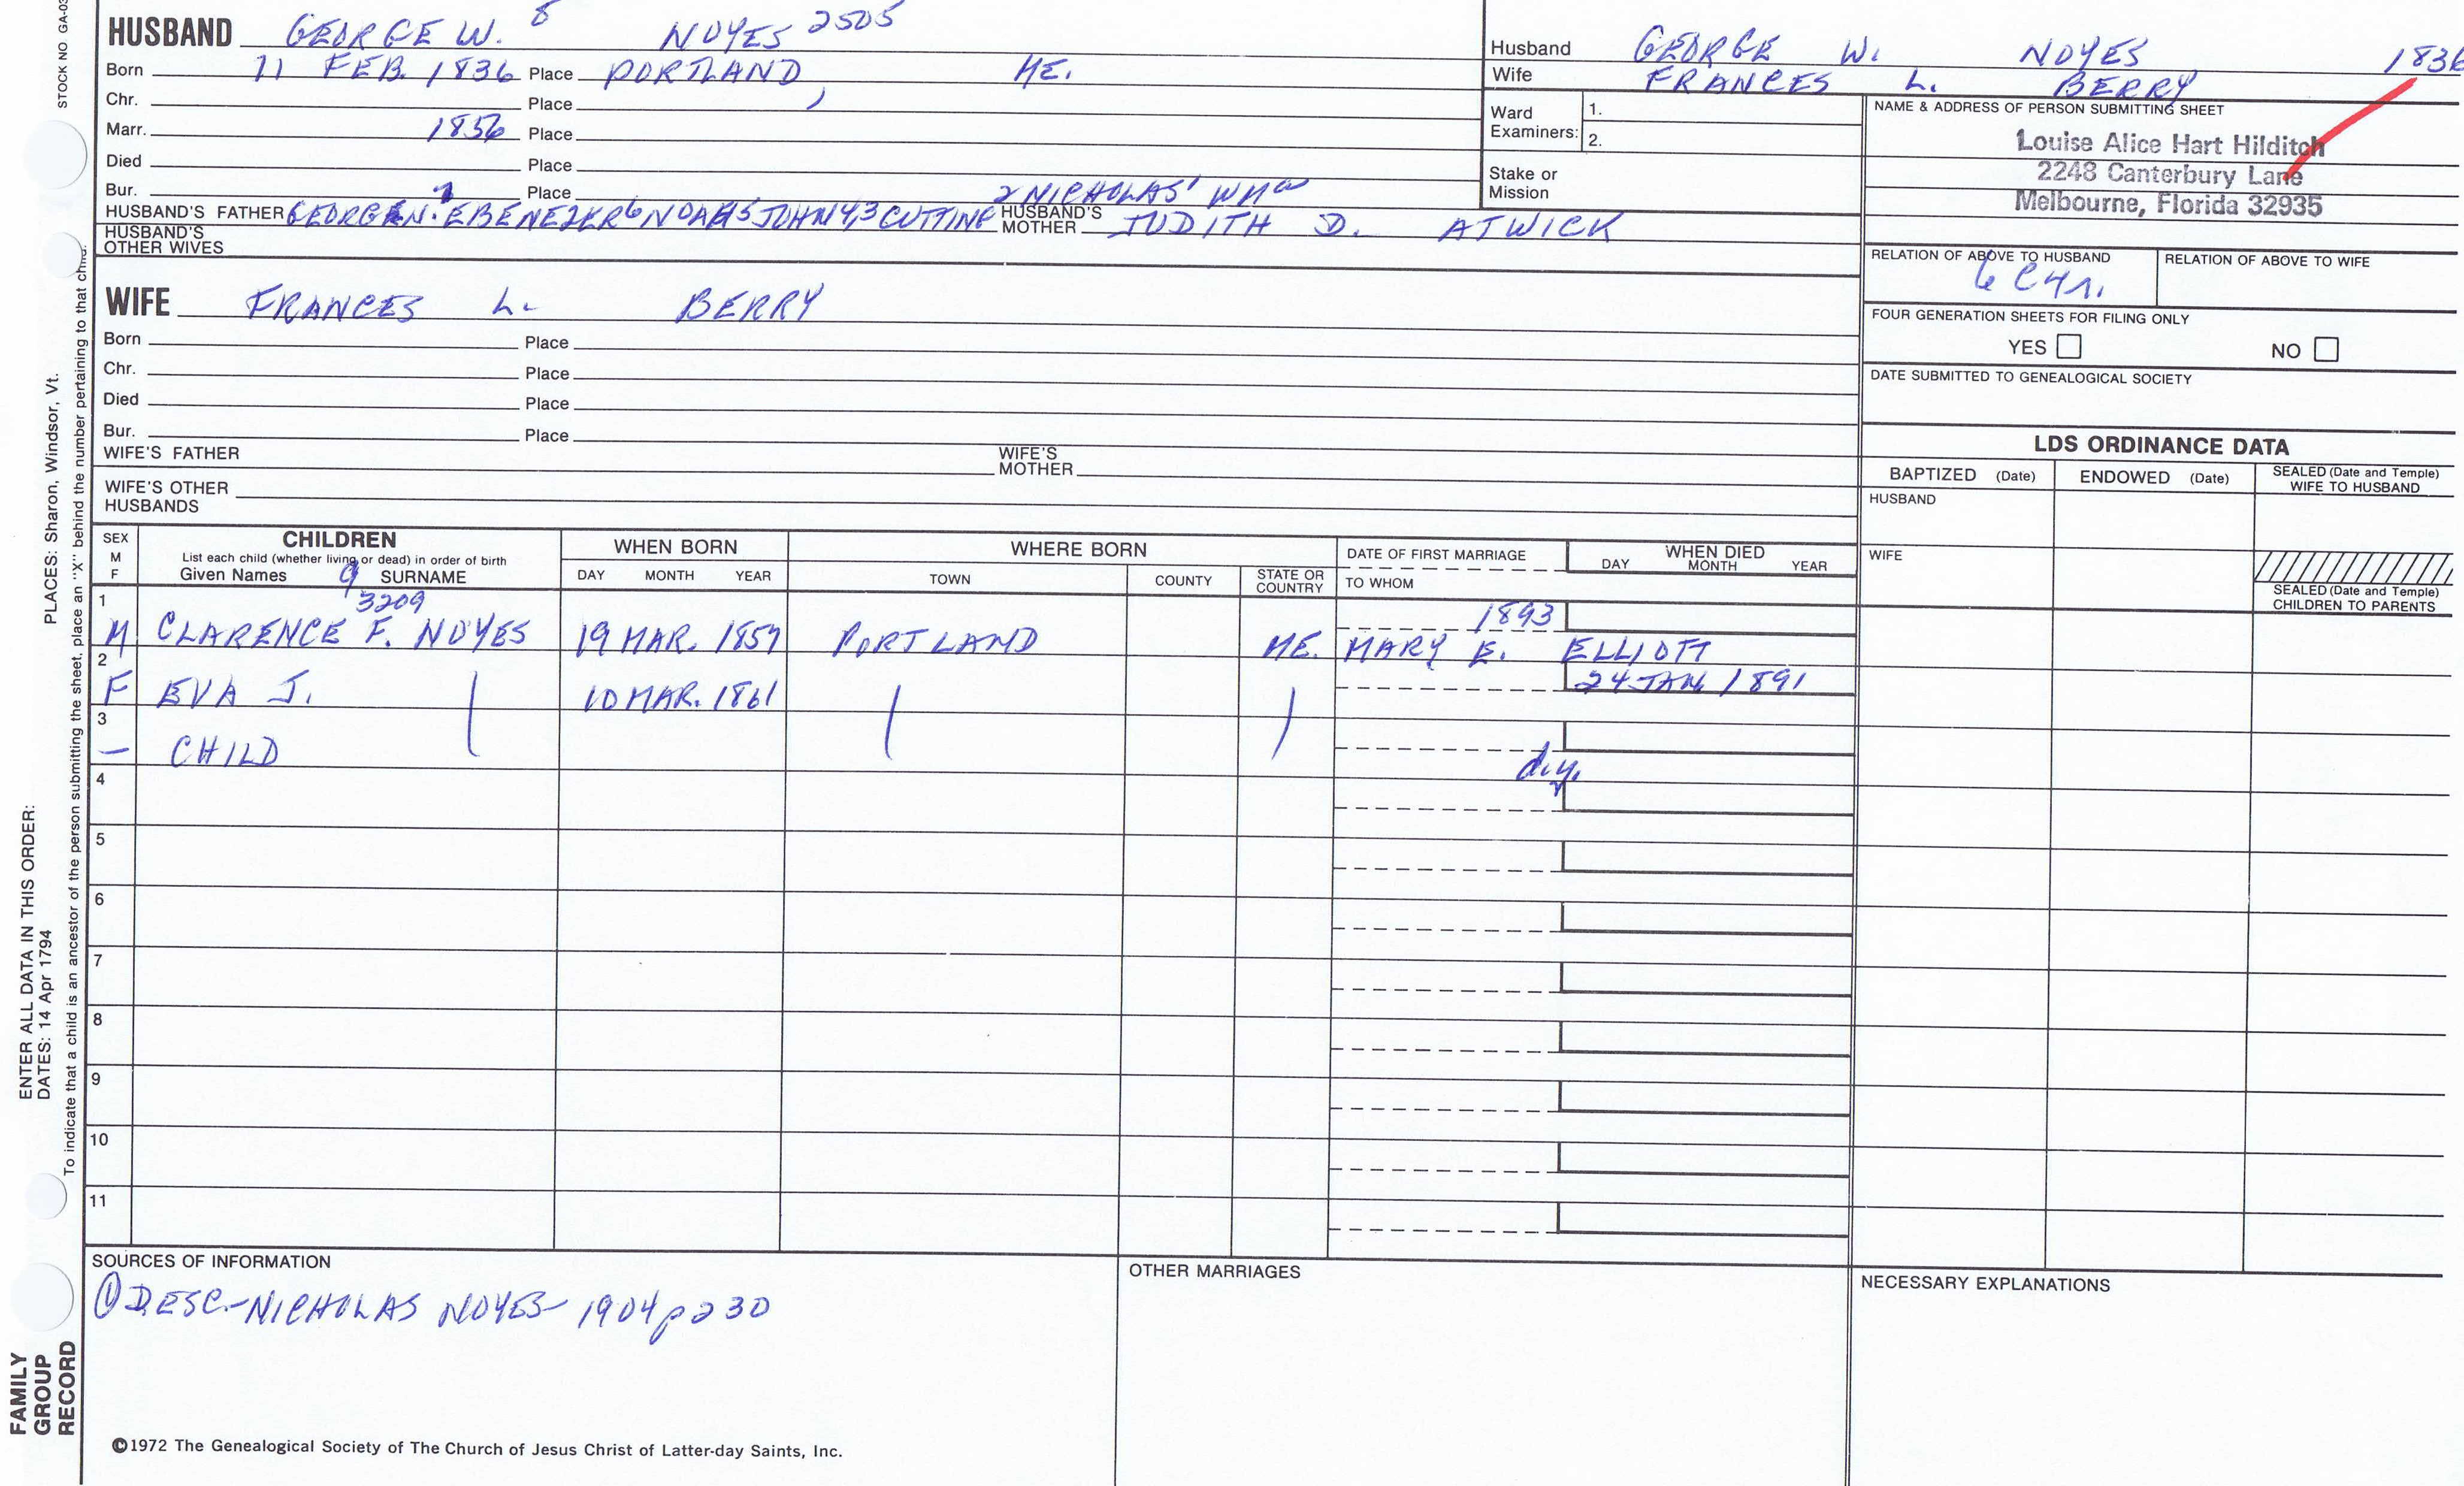 STOCK NO GA-03
HUSBAND GEORGE W. 8 NOYES 2505
Born 11 FEB. 1836 Place PORTLAND, ME.
Chr. Place
Marr. 1856 Place
Died Place
Bur. Place
2 NICHOLAS' WMa
HUSBAND'S FATHER GEORGE N. 7 EBENEZER 6 NOAH 5 JOHN 43 CUTTING HUSBAND'S MOTHER JUDITH D. ATWICK
HUSBAND'S OTHER WIVES
WIFE FRANCES L. BERRY
Born Place
Chr. Place
Died Place
Bur. Place
WIFE'S FATHER WIFE'S MOTHER
WIFE'S OTHER HUSBANDS
Husband GEORGE W. NOYES 1836
Wife FRANCES L. BERRY
Ward Examiners: 1.
2.
Stake or Mission
NAME & ADDRESS OF PERSON SUBMITTING SHEET
Louise Alice Hart Hilditch
2248 Canterbury Lane
Melbourne, Florida 32935
RELATION OF ABOVE TO HUSBAND RELATION OF ABOVE TO WIFE
6 C4r.
FOUR GENERATION SHEETS FOR FILING ONLY
YES NO
DATE SUBMITTED TO GENEALOGICAL SOCIETY
LDS ORDINANCE DATA
BAPTIZED (Date) ENDOWED (Date) SEALED (Date and Temple) WIFE TO HUSBAND
HUSBAND
WIFE
SEALED (Date and Temple) CHILDREN TO PARENTS
SEX M F
CHILDREN
List each child (whether living or dead) in order of birth
Given Names 9 SURNAME
WHEN BORN
DAY MONTH YEAR
WHERE BORN
TOWN COUNTY STATE OR COUNTRY
DATE OF FIRST MARRIAGE
TO WHOM
WHEN DIED
DAY MONTH YEAR
1 3209 1893
M CLARENCE F. NOYES 19 MAR. 1857 PORTLAND ME. MARY E. ELLIOTT
2 24 JAN 1891
F EVA J. 10 MAR. 1861
3
— CHILD
d.y.
4
5
6
7
8
9
10
11
SOURCES OF INFORMATION
① DESC-NICHOLAS NOYES-1904 p 230
OTHER MARRIAGES
NECESSARY EXPLANATIONS
©1972 The Genealogical Society of The Church of Jesus Christ of Latter-day Saints, Inc.
FAMILY
GROUP
RECORD
ENTER ALL DATA IN THIS ORDER:
DATES: 14 Apr 1794
PLACES: Sharon, Windsor, Vt.
To indicate that a child is an ancestor of the person submitting the sheet, place an "X" behind the number pertaining to that child.